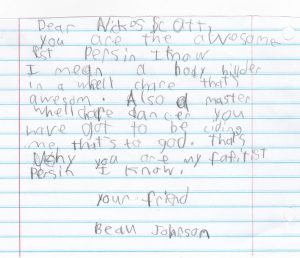 Dear Nikos Scott,
you are the awesome
ist Persin I know
I mean a body bilder
in a whell chare that's
awesom. Also a master
whellchare dancer you
have got to be ciding
me that's to god. thats
Why you are my fafirist
Persin I know.
your friend
Beau Johnson